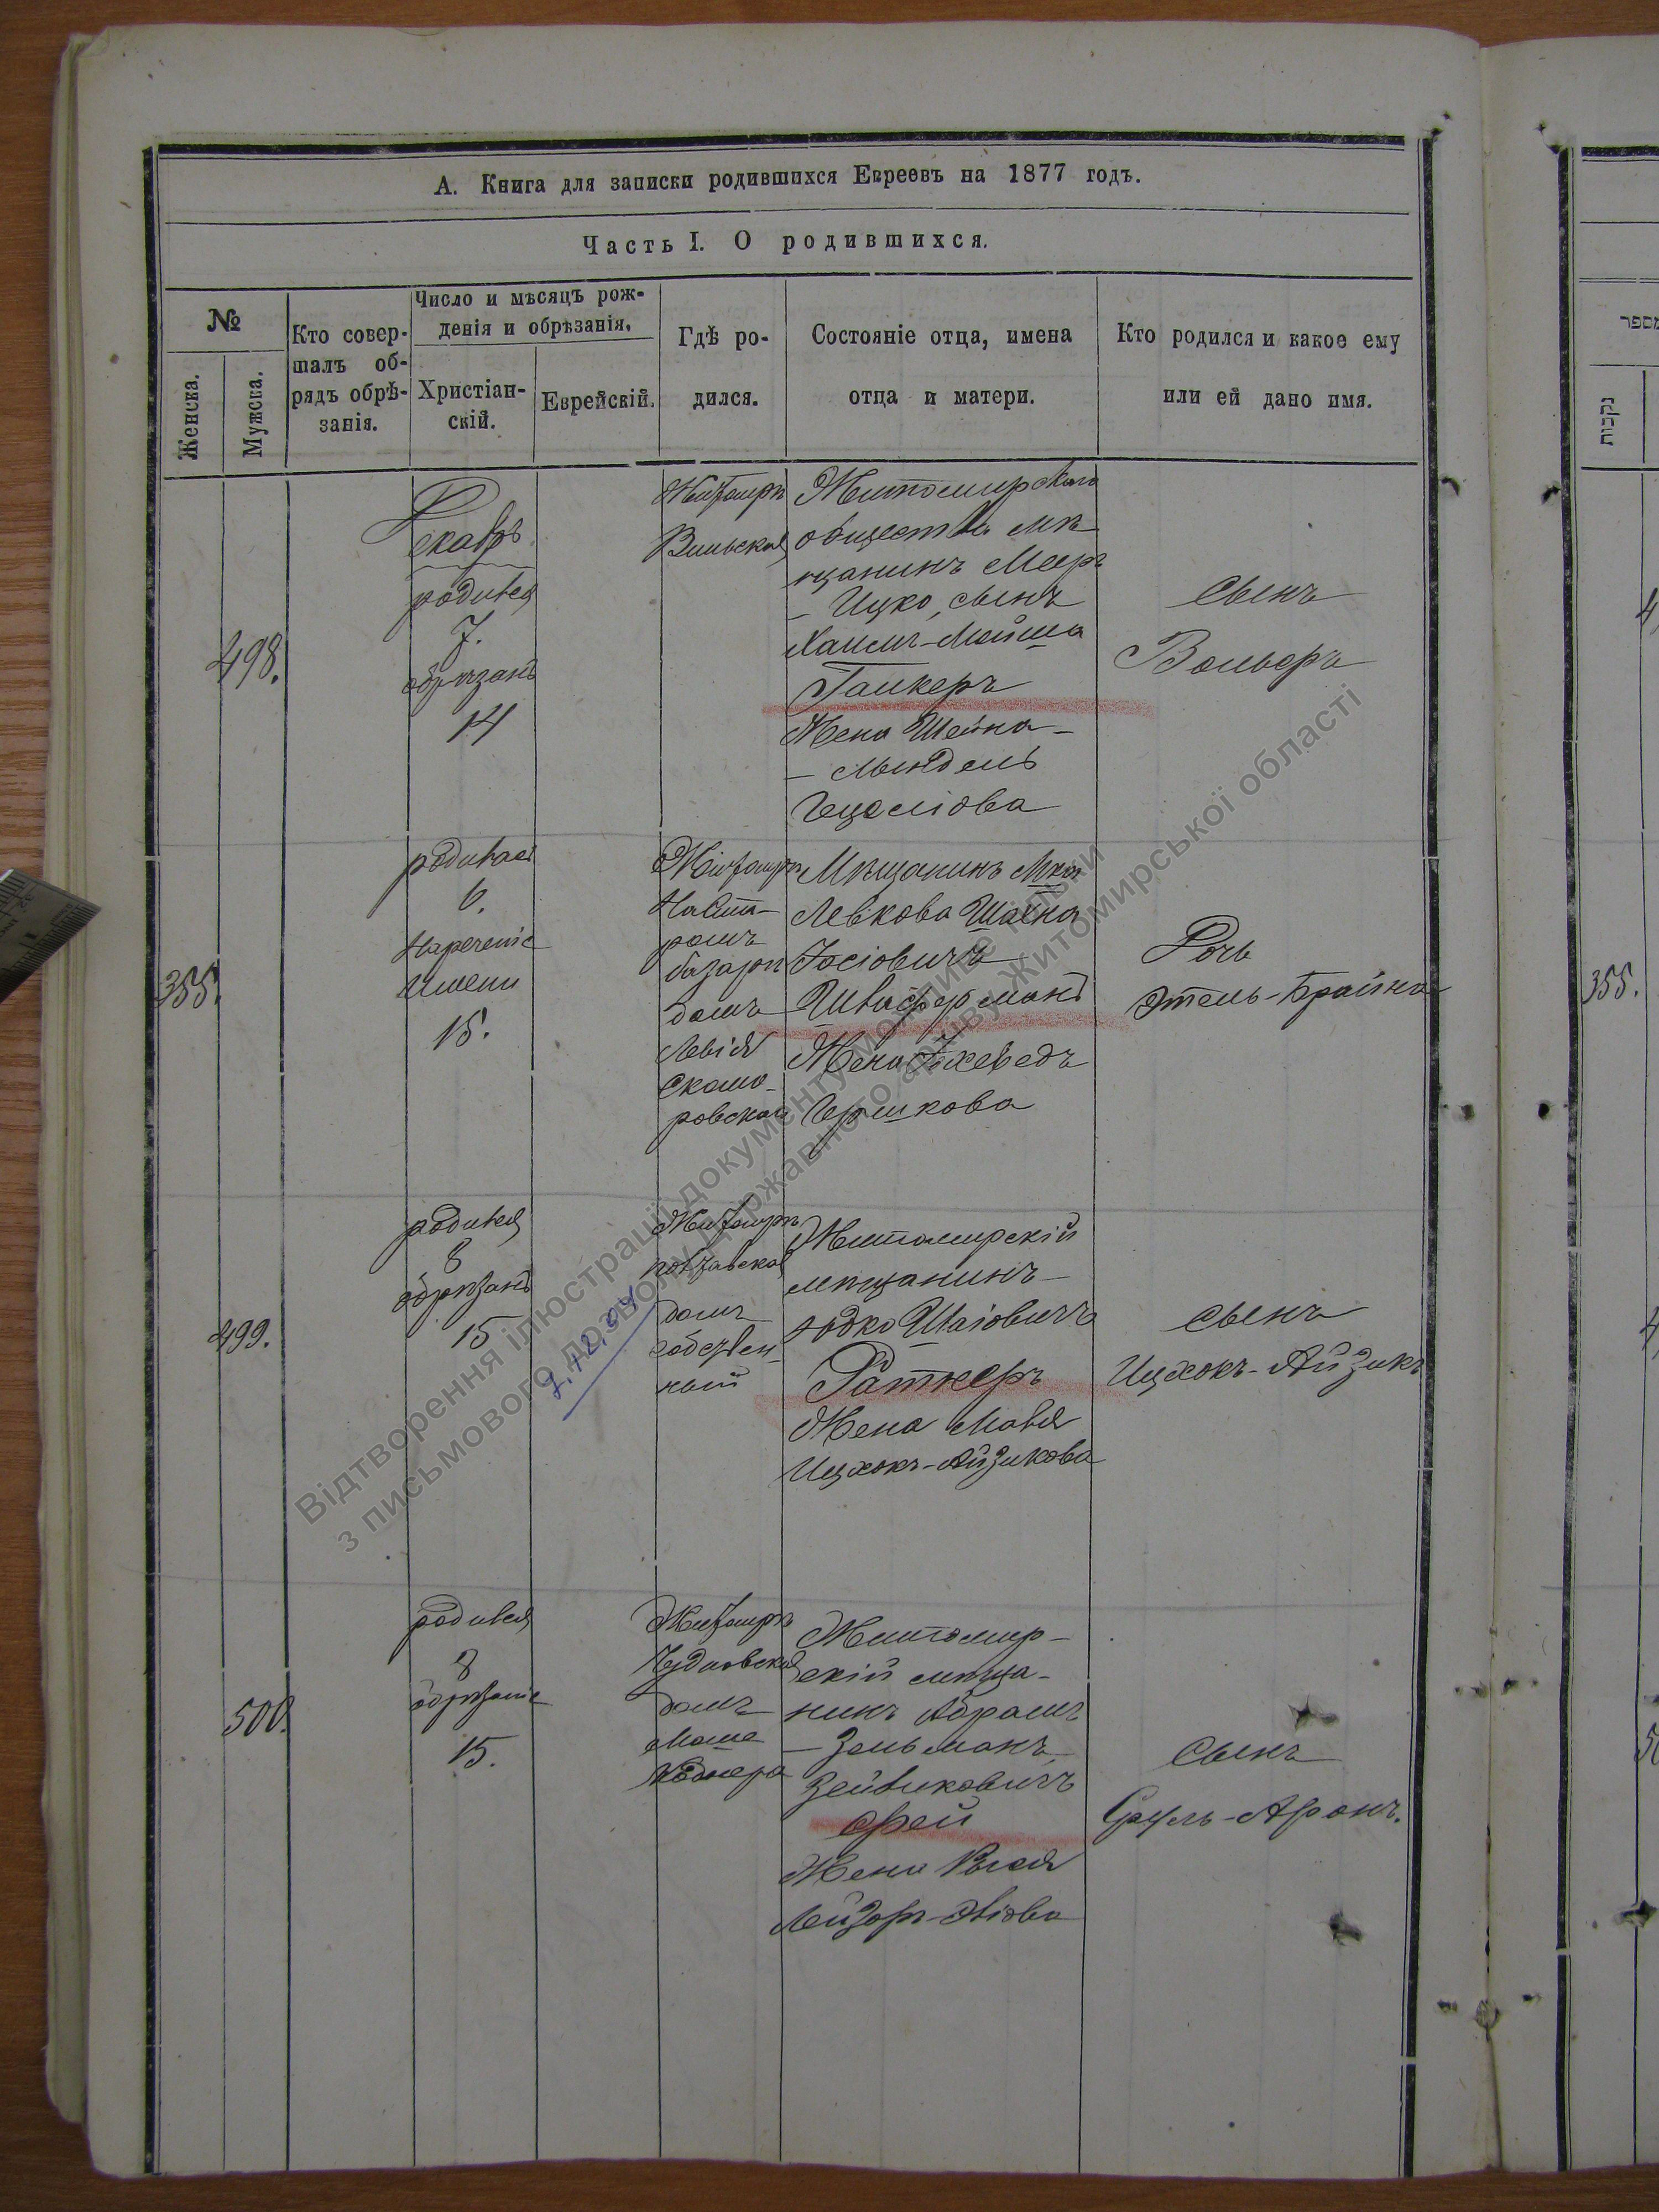 А. Книга для записки родившихся Евреевъ на 1877 годъ.
Часть I. О родившихся.
№
Женска.
Мужска.
Кто совер-
шалъ об-
рядъ обрѣ-
занія.
Число и мѣсяцъ рож-
денія и обрѣзанія.
Христіан-
скій.
Еврейскій.
Гдѣ ро-
дился.
Состояніе отца, имена
отца и матери.
Кто родился и какое ему
или ей дано имя.
498.
Декабрь
родився
7.
обрѣзанъ
14
Житомиръ
Вильская
Житомирскаго
общества мѣ-
щанинъ Меер
- Ицко, сынъ
Хаимъ-Мойша
Жена Шейна-
- Миндель
Гецеліова
Сынъ
Вольфъ
355.
родилась
6.
Наречение
Имени
15.
Житомиръ
На Ста-
ромъ
базарѣ
домъ
Левія
Скомо-
ровскаго
Мѣщанинъ
Левкова Шаена
Іосіовичъ
Жена Іохеведъ
Гершкова
Дочь
Этель-Брайна
499.
родився
8
обрѣзанъ
15
Житомиръ
домъ
собствен-
ный
Житомирскій
мѣщанинъ-
Юдко Шаіовичъ
Ратнеръ
Жена Мотля
Ицхокъ-Айзикова
Сынъ
Ицхокъ-Айзикъ
500.
родився
8
обрѣзаніе
15.
Житомиръ
Чудновская
домъ
Моше
Житомир-
скій мѣща-
нинъ Абрамъ
- Зельманъ
Зейвиковичъ
Фрей
Жена Рися
Лейзоръ-
Сынъ
Сруль-Аронъ.
Відтворення ілюстрації документу можливе тільки
з письмового дозволу Державного архіву Житомирської області
מספר
נקבות
355.